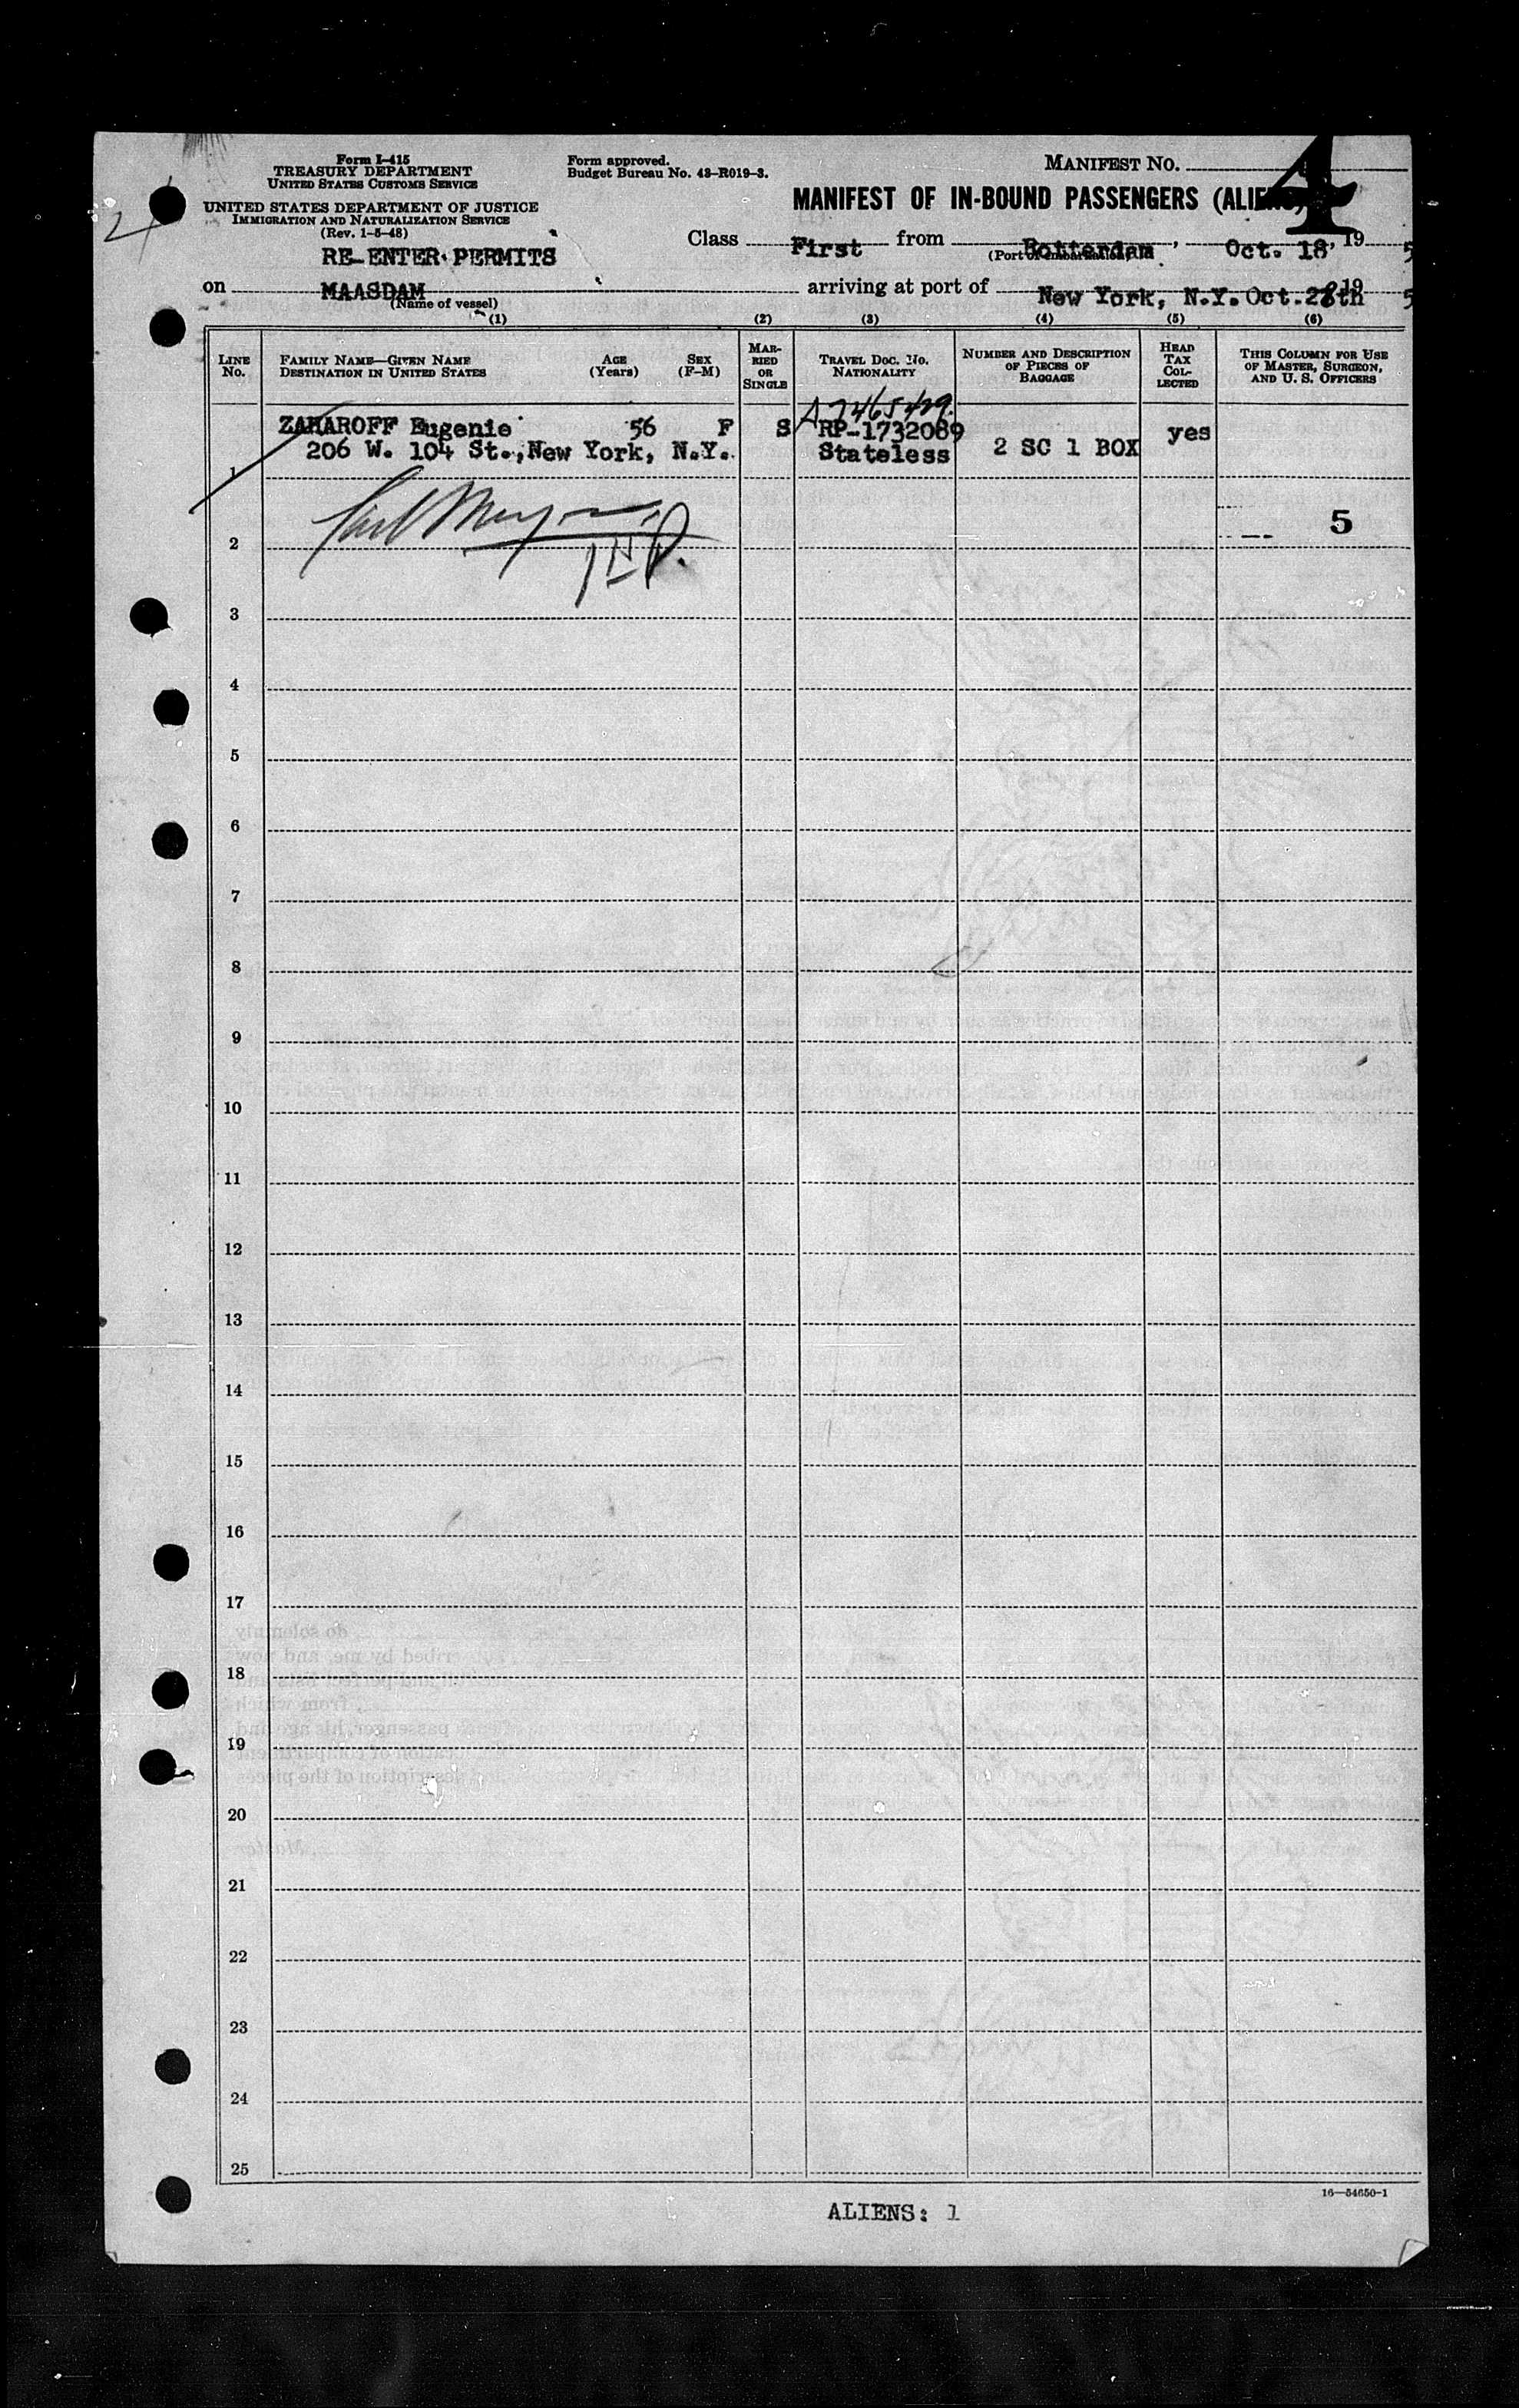 Form I-415
TREASURY DEPARTMENT
UNITED STATES CUSTOMS SERVICE
UNITED STATES DEPARTMENT OF JUSTICE
IMMIGRATION AND NATURALIZATION SERVICE
(Rev. 1-5-48)
Form approved.
Budget Bureau No. 43-R019-3.
MANIFEST NO. 4
MANIFEST OF IN-BOUND PASSENGERS (ALIENS)
RE-ENTER PERMITS
Class First from Rotterdam, Oct. 18, 19 5
(Port of embarkation)
on MAASDAM arriving at port of New York, N.Y. Oct. 28th 19 5
(Name of vessel)
(1) (2) (3) (4) (5) (6)
LINE No.
FAMILY NAME—GIVEN NAME AGE (Years) SEX (F-M)
DESTINATION IN UNITED STATES
MARRIED OR SINGLE
TRAVEL DOC. NO. NATIONALITY
NUMBER AND DESCRIPTION OF PIECES OF BAGGAGE
HEAD TAX COLLECTED
THIS COLUMN FOR USE OF MASTER, SURGEON, AND U. S. OFFICERS
A7465429.
ZAHAROFF Eugenie 56 F S RP-1732089 2 SC 1 BOX yes
206 W. 104 St., New York, N.Y. Stateless
1
5
2
3
4
5
6
7
8
9
10
11
12
13
14
15
16
17
18
19
20
21
22
23
24
25
16—54650-1
ALIENS: 1